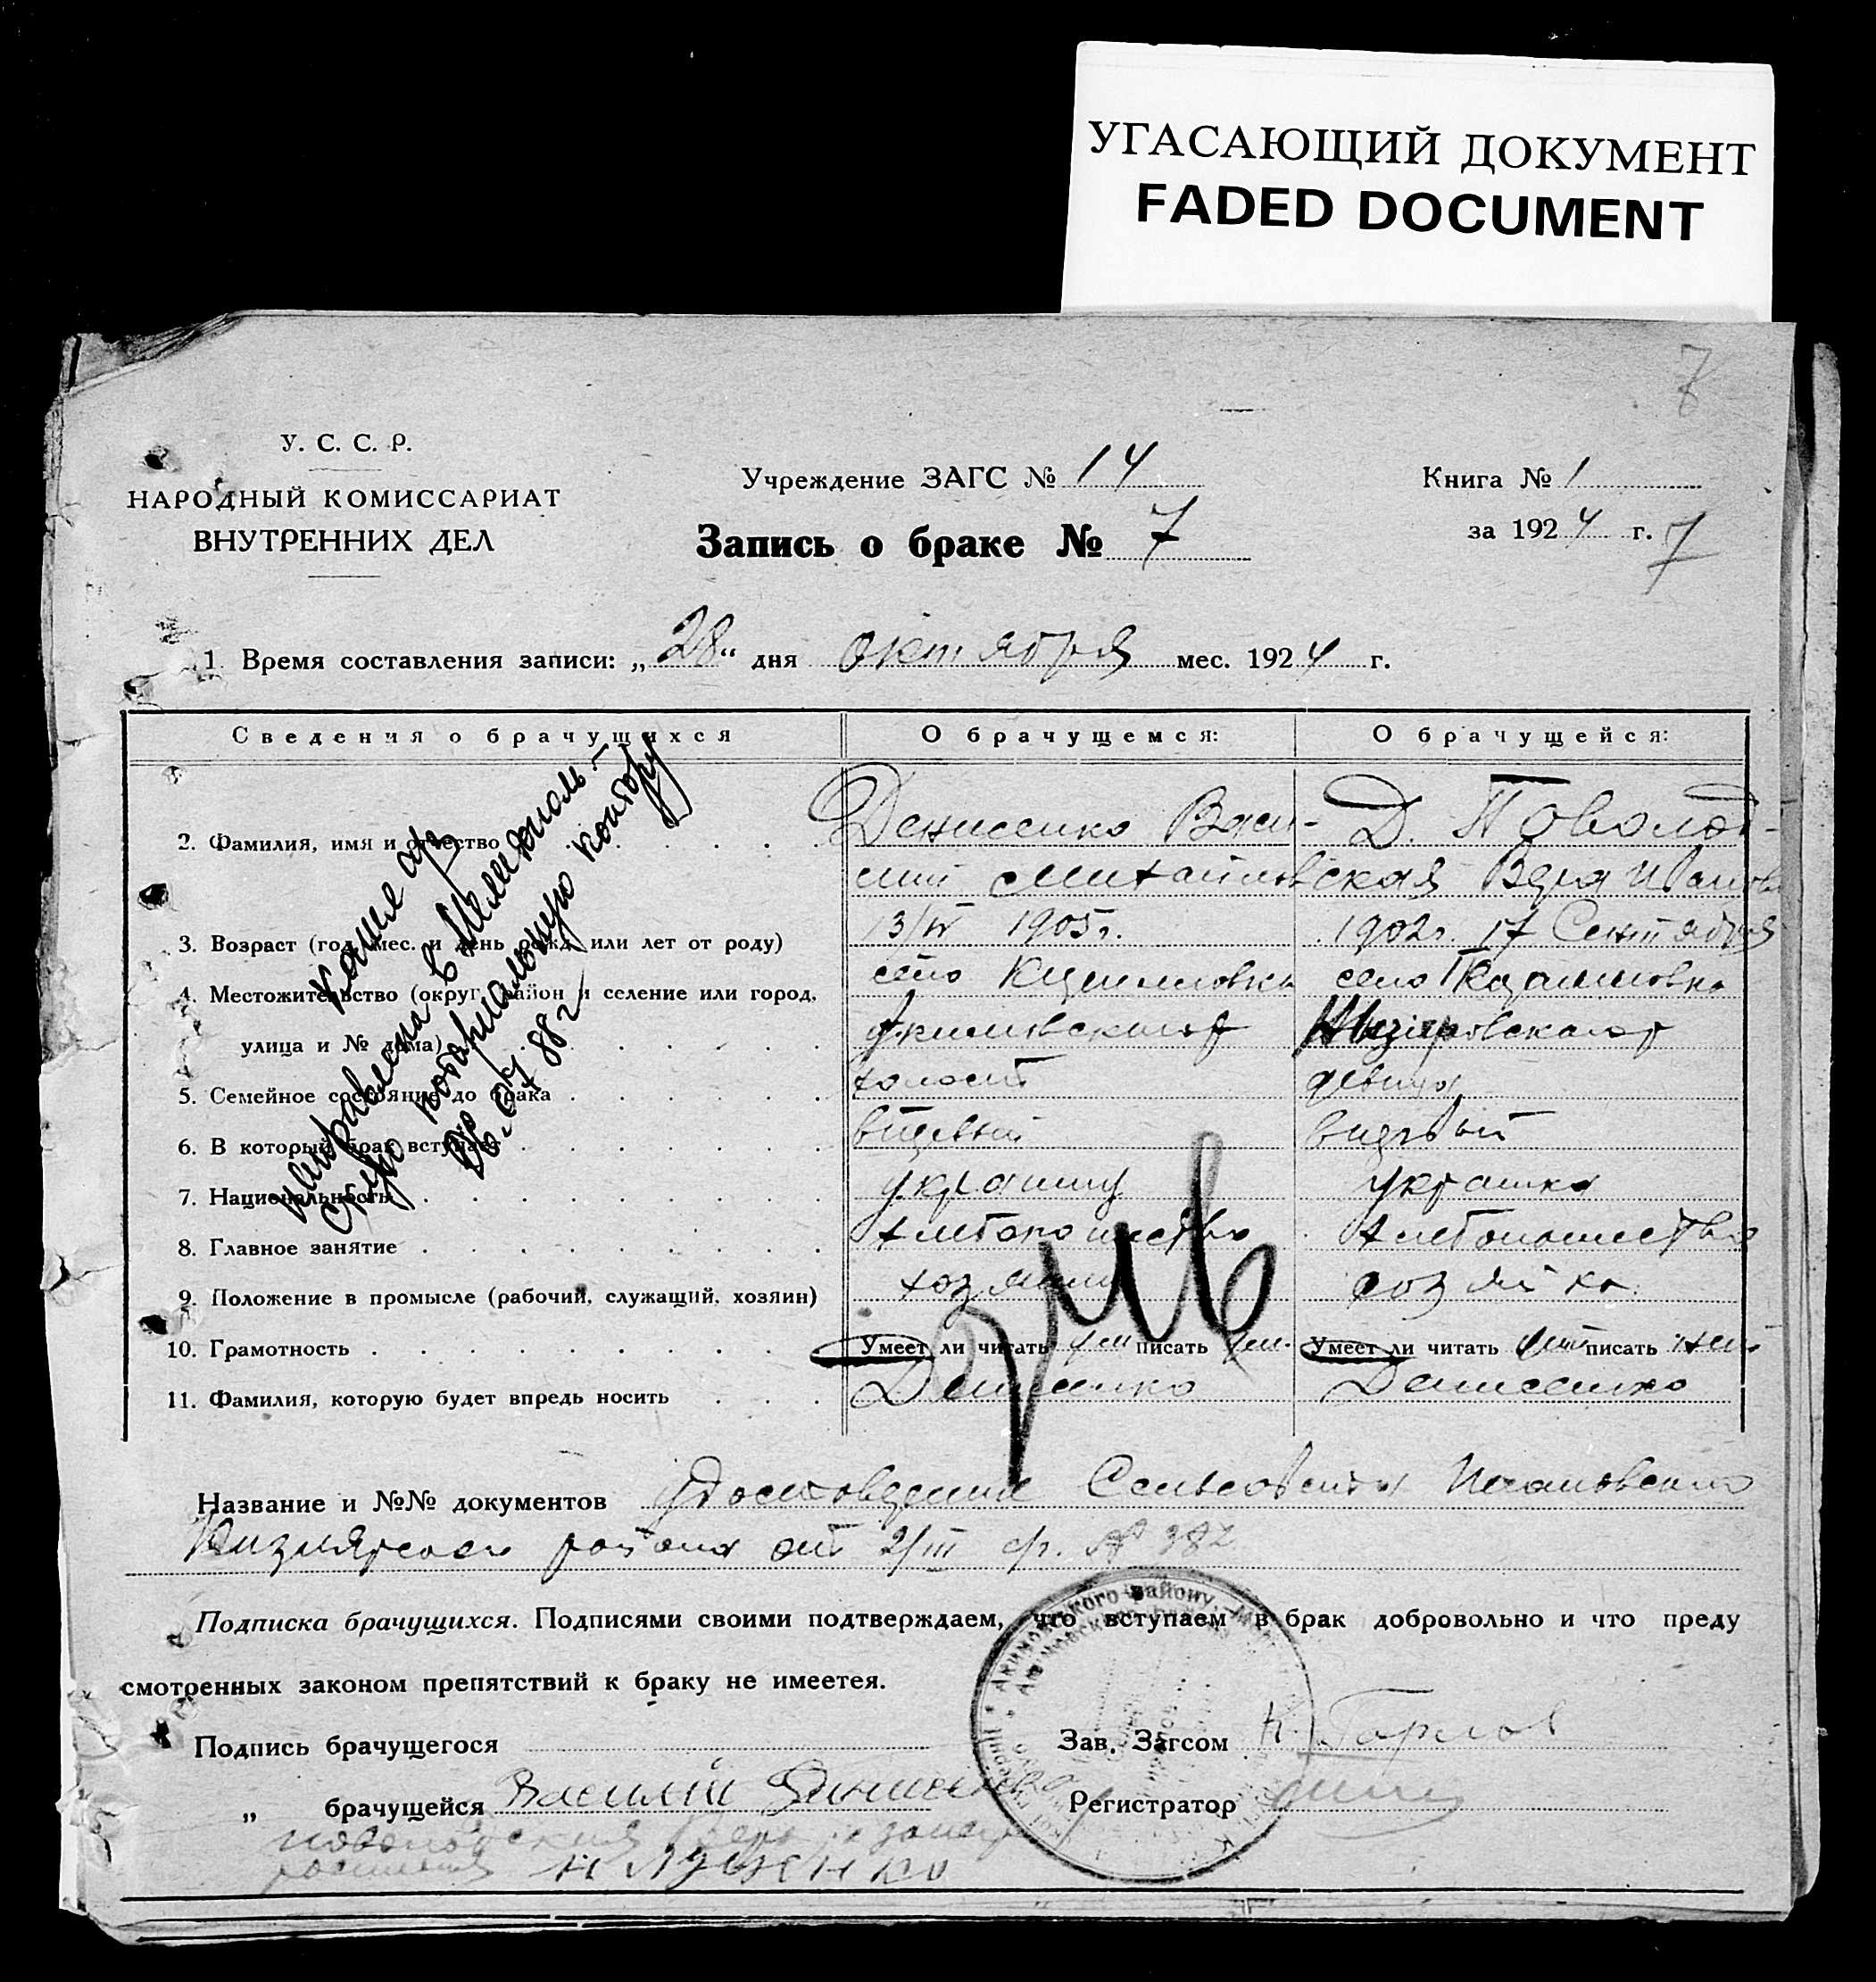 УГАСАЮЩИЙ ДОКУМЕНТ
FADED DOCUMENT
7
У. С. С. Р.
НАРОДНЫЙ КОМИССАРИАТ
ВНУТРЕННИХ ДЕЛ
Учреждение ЗАГС № 14
Запись о браке № 7
Книга № 1
за 1924 г. 7
1. Время составления записи: „28“ дня октября мес. 1924 г.
Сведения о брачущихся О брачущемся: О брачущейся:
2. Фамилия, имя и отчество Денисенко Васи- Д. Поволод-
лий Михайлов ская Вера Иванов
3. Возраст (год, мес. и день рожд. или лет от роду) 13/IV 1905г. 1902г. 17 Сентября
4. Местожительство (округ, район и селение или город, село село
улица и № дома) Акимовского
5. Семейное состояние до брака холост девица
6. В который брак вступает
7. Национальность украинец украинка
8. Главное занятие хлебопашество хлебопашество
9. Положение в промысле (рабочий, служащий, хозяин) хозяин хозяйка
10. Грамотность Умеет ли читать ум писать ум. Умеет ли читать писать
11. Фамилия, которую будет впредь носить Денисенко Денисенко
Копия а/з
направлена в Мелитополь-
скую нотариальную контору
26.04.88г.
Название и №№ документов удостоверение Сельсовета
района от 2/III с/г. № 382
Подписка брачущихся. Подписями своими подтверждаем, что вступаем в брак добровольно и что преду
смотренных законом препятствий к браку не имеетея.
Подпись брачущегося
Зав. Загсом К. Горлов
„ брачущейся Василий Денисенко
Регистратор